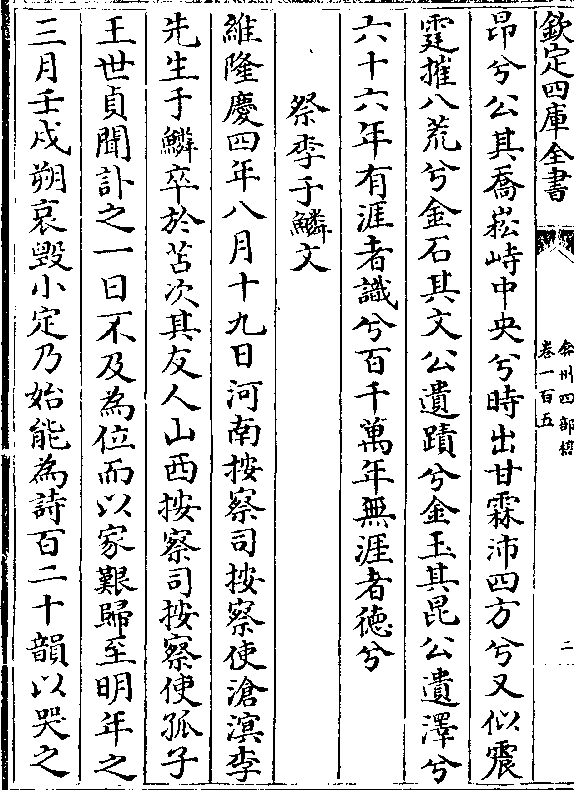 欽定四庫全書
弇州四部稿
卷一百五
二
昂兮公其喬崧峙中央兮時出甘霖沛四方兮又似震
霆摧八荒兮金石其文公遺蹟兮金玉其昆公遺澤兮
六十六年有涯者識兮百千萬年無涯者德兮
祭李于鱗文
維隆慶四年八月十九日河南按察司按察使滄溟李
先生于鱗卒於苫次其友人山西按察司按察使孤子
王世貞聞訃之一日不及為位而以家艱歸至明年之
三月壬戌朔哀毀小定乃始能為詩百二十韻以哭之